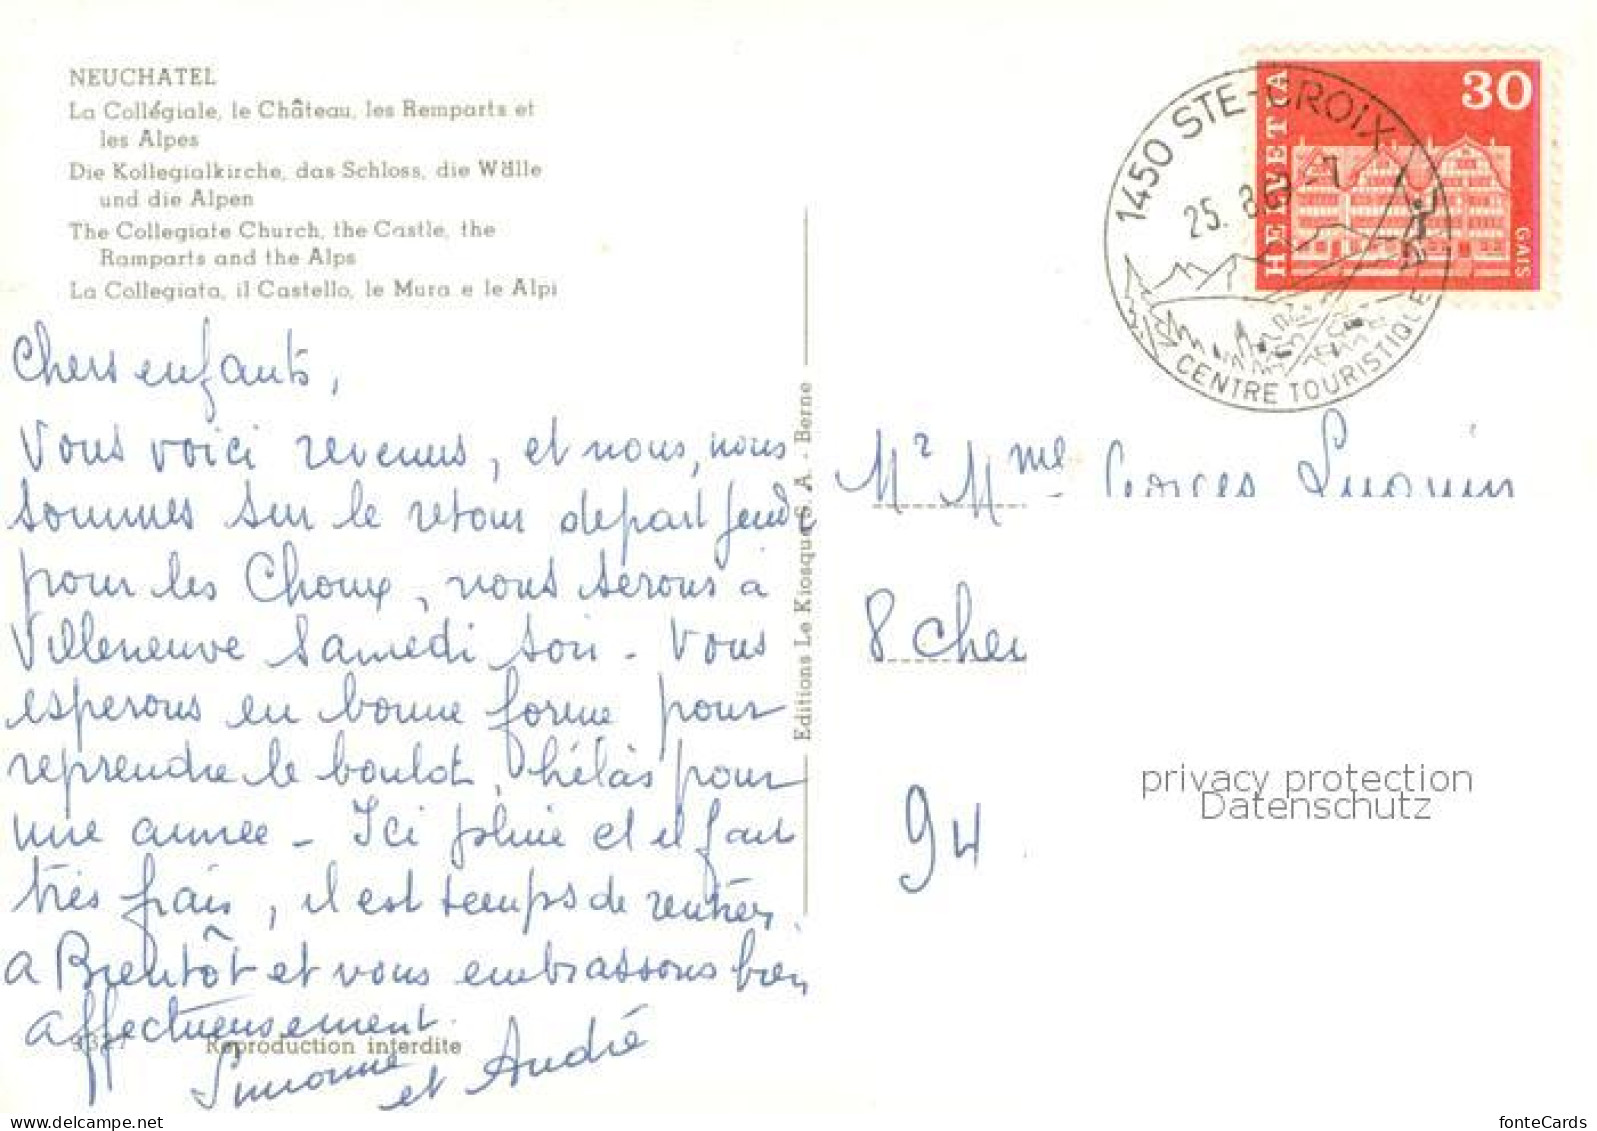 NEUCHATEL
La Collégiale, le Château, les Remparts et
les Alpes
Die Kollegialkirche, das Schloss, die Wälle
und die Alpen
The Collegiate Church, the Castle, the
Ramparts and the Alps
La Collegiata, il Castello, le Mura e le Alpi
Chers enfants,
Vous voici revenus, et nous, nous
sommes sur le retour depart jeudi
pour les Choux, nous serons à
Villeneuve Samedi soir - Vous
esperons en bonne forme pour
reprendre le boulot, hélàs pour
une année - Ici pluie et il fait
très frais, il est temps de rentrer,
a Bientôt et vous embrassons bien
affectueusement.
Simonne
et André
9327 Reproduction interdite
Editions Le Kiosque S. A. - Berne
1450 STE-CROIX
25. 8.69 -7
CENTRE TOURISTIQUE
HELVETIA
30
GAIS
Mr Mme
8 Che
94
privacy protection
Datenschutz
delcampe.net
fonteCards